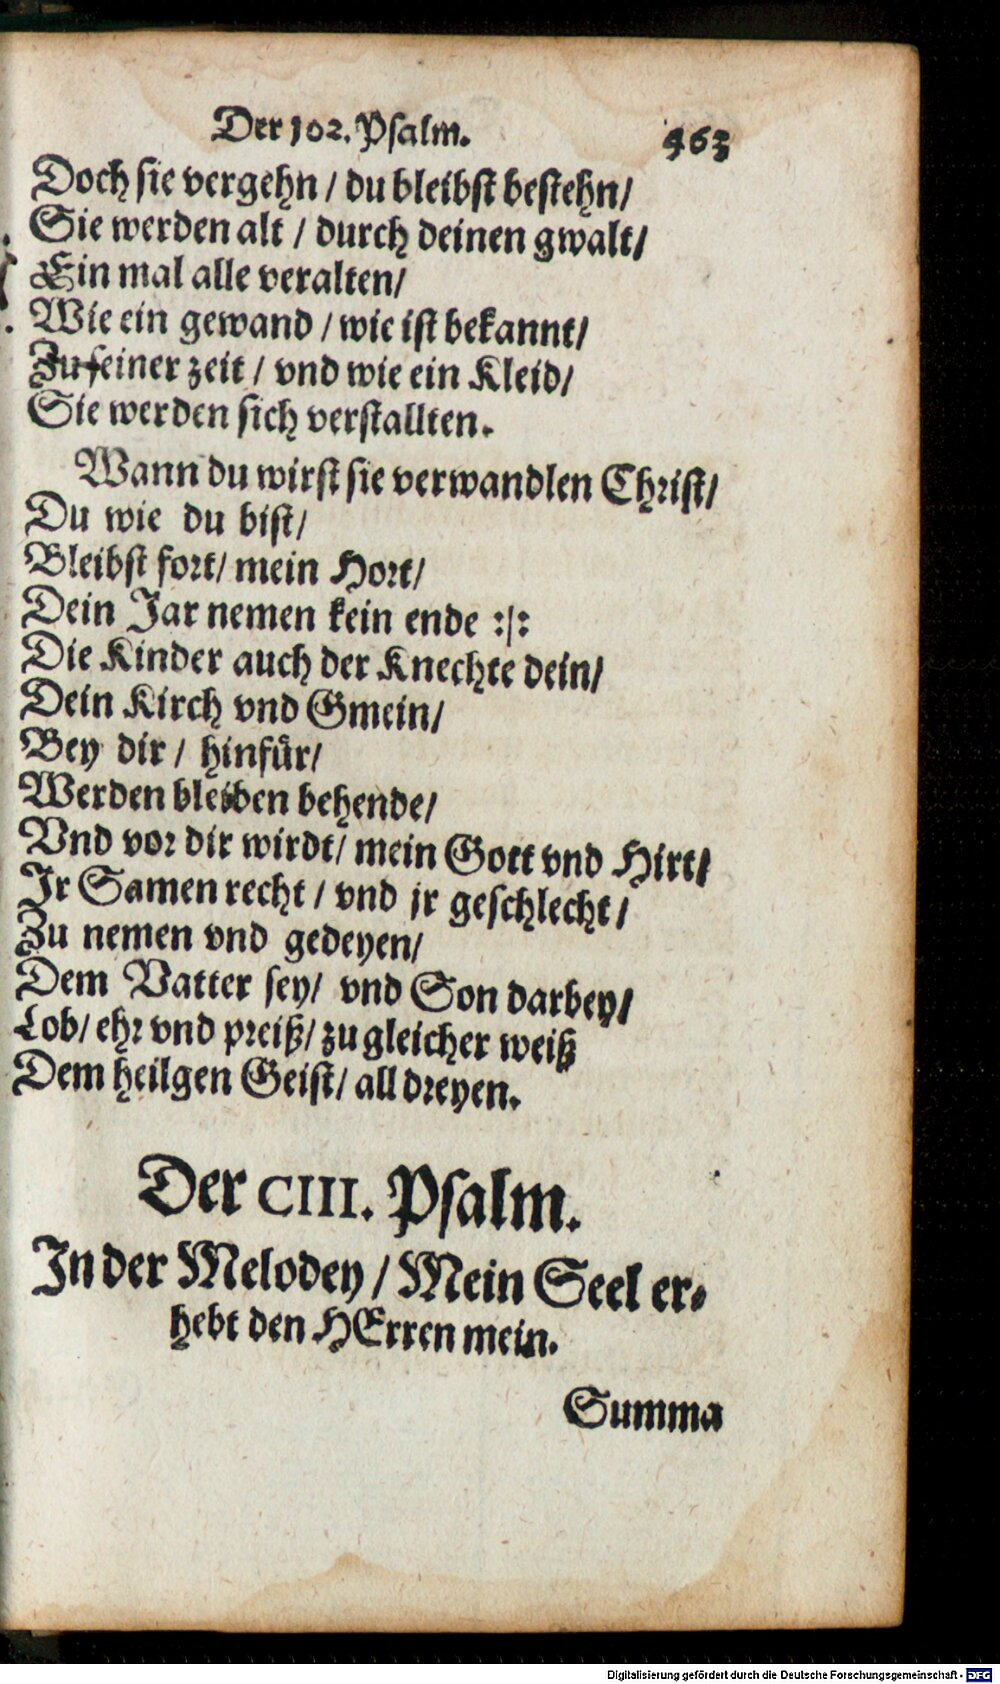 Der 102. Psalm. 463
Doch sie vergehn / du bleibst bestehn/
Sie werden alt / durch deinen gwalt/
Ein mal alle veralten/
Wie ein gewand / wie ist bekannt/
Zu seiner zeit / vnd wie ein Kleid/
Sie werden sich verstallten.
Wann du wirst sie verwandlen Christ/
Du wie du bist/
Bleibst fort/ mein Hort/
Dein Jar nemen kein ende :/:
Die Kinder auch der Knechte dein/
Dein Kirch vnd Gmein/
Bey dir / hinfür/
Werden bleiben behende/
Vnd vor dir wirdt/ mein Gott vnd Hirt/
Jr Samen recht / vnd jr geschlecht/
Zu nemen vnd gedeyen/
Dem Vatter sey/ vnd Son darbey/
Lob/ ehr vnd preiß/ zu gleicher weiß
Dem heilgen Geist/ all dreyen.
Der CIII. Psalm.
In der Melodey / Mein Seel er-
hebt den HErren mein.
Summa
Digitalisierung gefördert durch die Deutsche Forschungsgemeinschaft - DFG